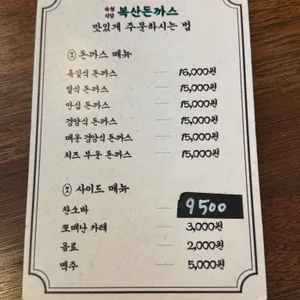 숙성
식당 복산돈까스
맛있게 주문하시는 법
① 돈까스 메뉴
흑임식 돈까스 16,000원
일식 돈까스 15,000원
안심 돈까스 15,000원
경양식 돈까스 15,000원
매운 경양식 돈까스 15,000원
치즈 퐁듀 돈까스 15,000원
② 사이드 메뉴
찬소바 9500
또매난 카레 3,000원
음료 2,000원
맥주 5,000원